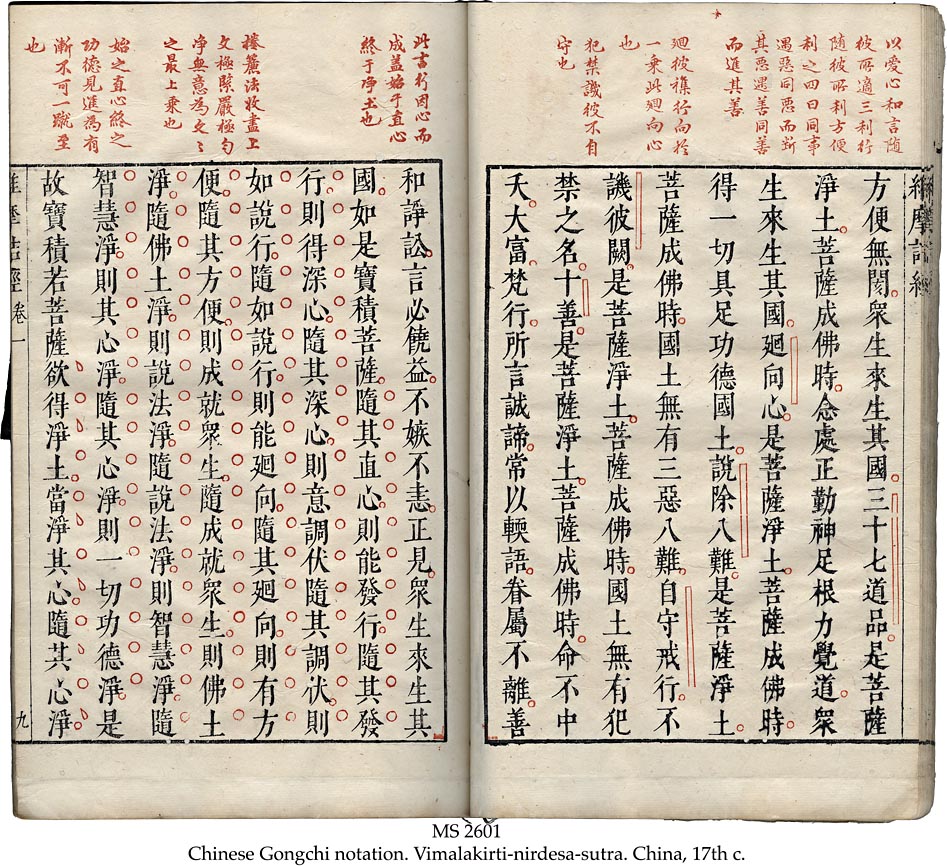 以愛心和言隨
彼所適三利行
隨彼所利方便
利之四曰同事
遇惡同惡而斷
其惡遇善同善
而進其善
廻彼襍行向於
一乗此廻向心
也
犯禁譏彼不自
守也
維摩詰經
方便無閡衆生來生其國三十七道品是菩薩
淨土菩薩成佛時念處正勤神足根力覺道衆
生來生其國廻向心是菩薩淨土菩薩成佛時
得一切具足功德國土說除八難是菩薩淨土
菩薩成佛時國土無有三惡八難自守戒行不
譏彼闕是菩薩淨土菩薩成佛時國土無有犯
禁之名十善是菩薩淨土菩薩成佛時命不中
夭大富梵行所言誠諦常以輭語眷屬不離善
此言行因心而
成益始于直心
終于淨土也
捲簾法收盡上
文極緊嚴極勻
净無意為文々
之最上乗也
始之直心終之
功德見進為有
漸不可一蹴至
也
和諍訟言必饒益不嫉不恚正見衆生來生其
國如是寶積菩薩隨其直心則能發行隨其發
行則得深心隨其深心則意調伏隨其調伏則
如說行隨如說行則能廻向隨其廻向則有方
便隨其方便則成就衆生隨成就衆生則佛土
淨隨佛土淨則說法淨隨說法淨則智慧淨隨
智慧淨則其心淨隨其心淨則一切功德淨是
故寶積若菩薩欲得淨土當淨其心隨其心淨
維摩詰經 卷一 九
MS 2601
Chinese Gongchi notation. Vimalakirti-nirdesa-sutra. China, 17th c.